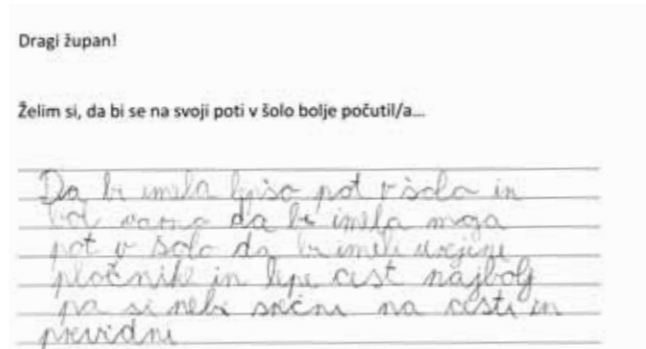 Dragi župan!
Želim si, da bi se na svoji poti v šolo bolje počutil/a...
Da bi imela lepšo pot v šolo in
bol varno da bi imela moja
pot v šolo da bi imeli urejine
pločnike in lepe cest najbolj
pa si nebi srečni na cesti in
previdni